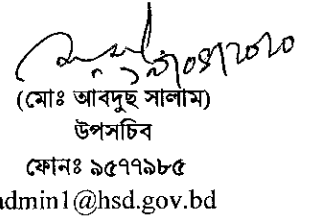 (মোঃ আবদুছ সালাম)
উপসচিব
ফোনঃ ৯৫৭৭৯৮৫
admin1@hsd.gov.bd